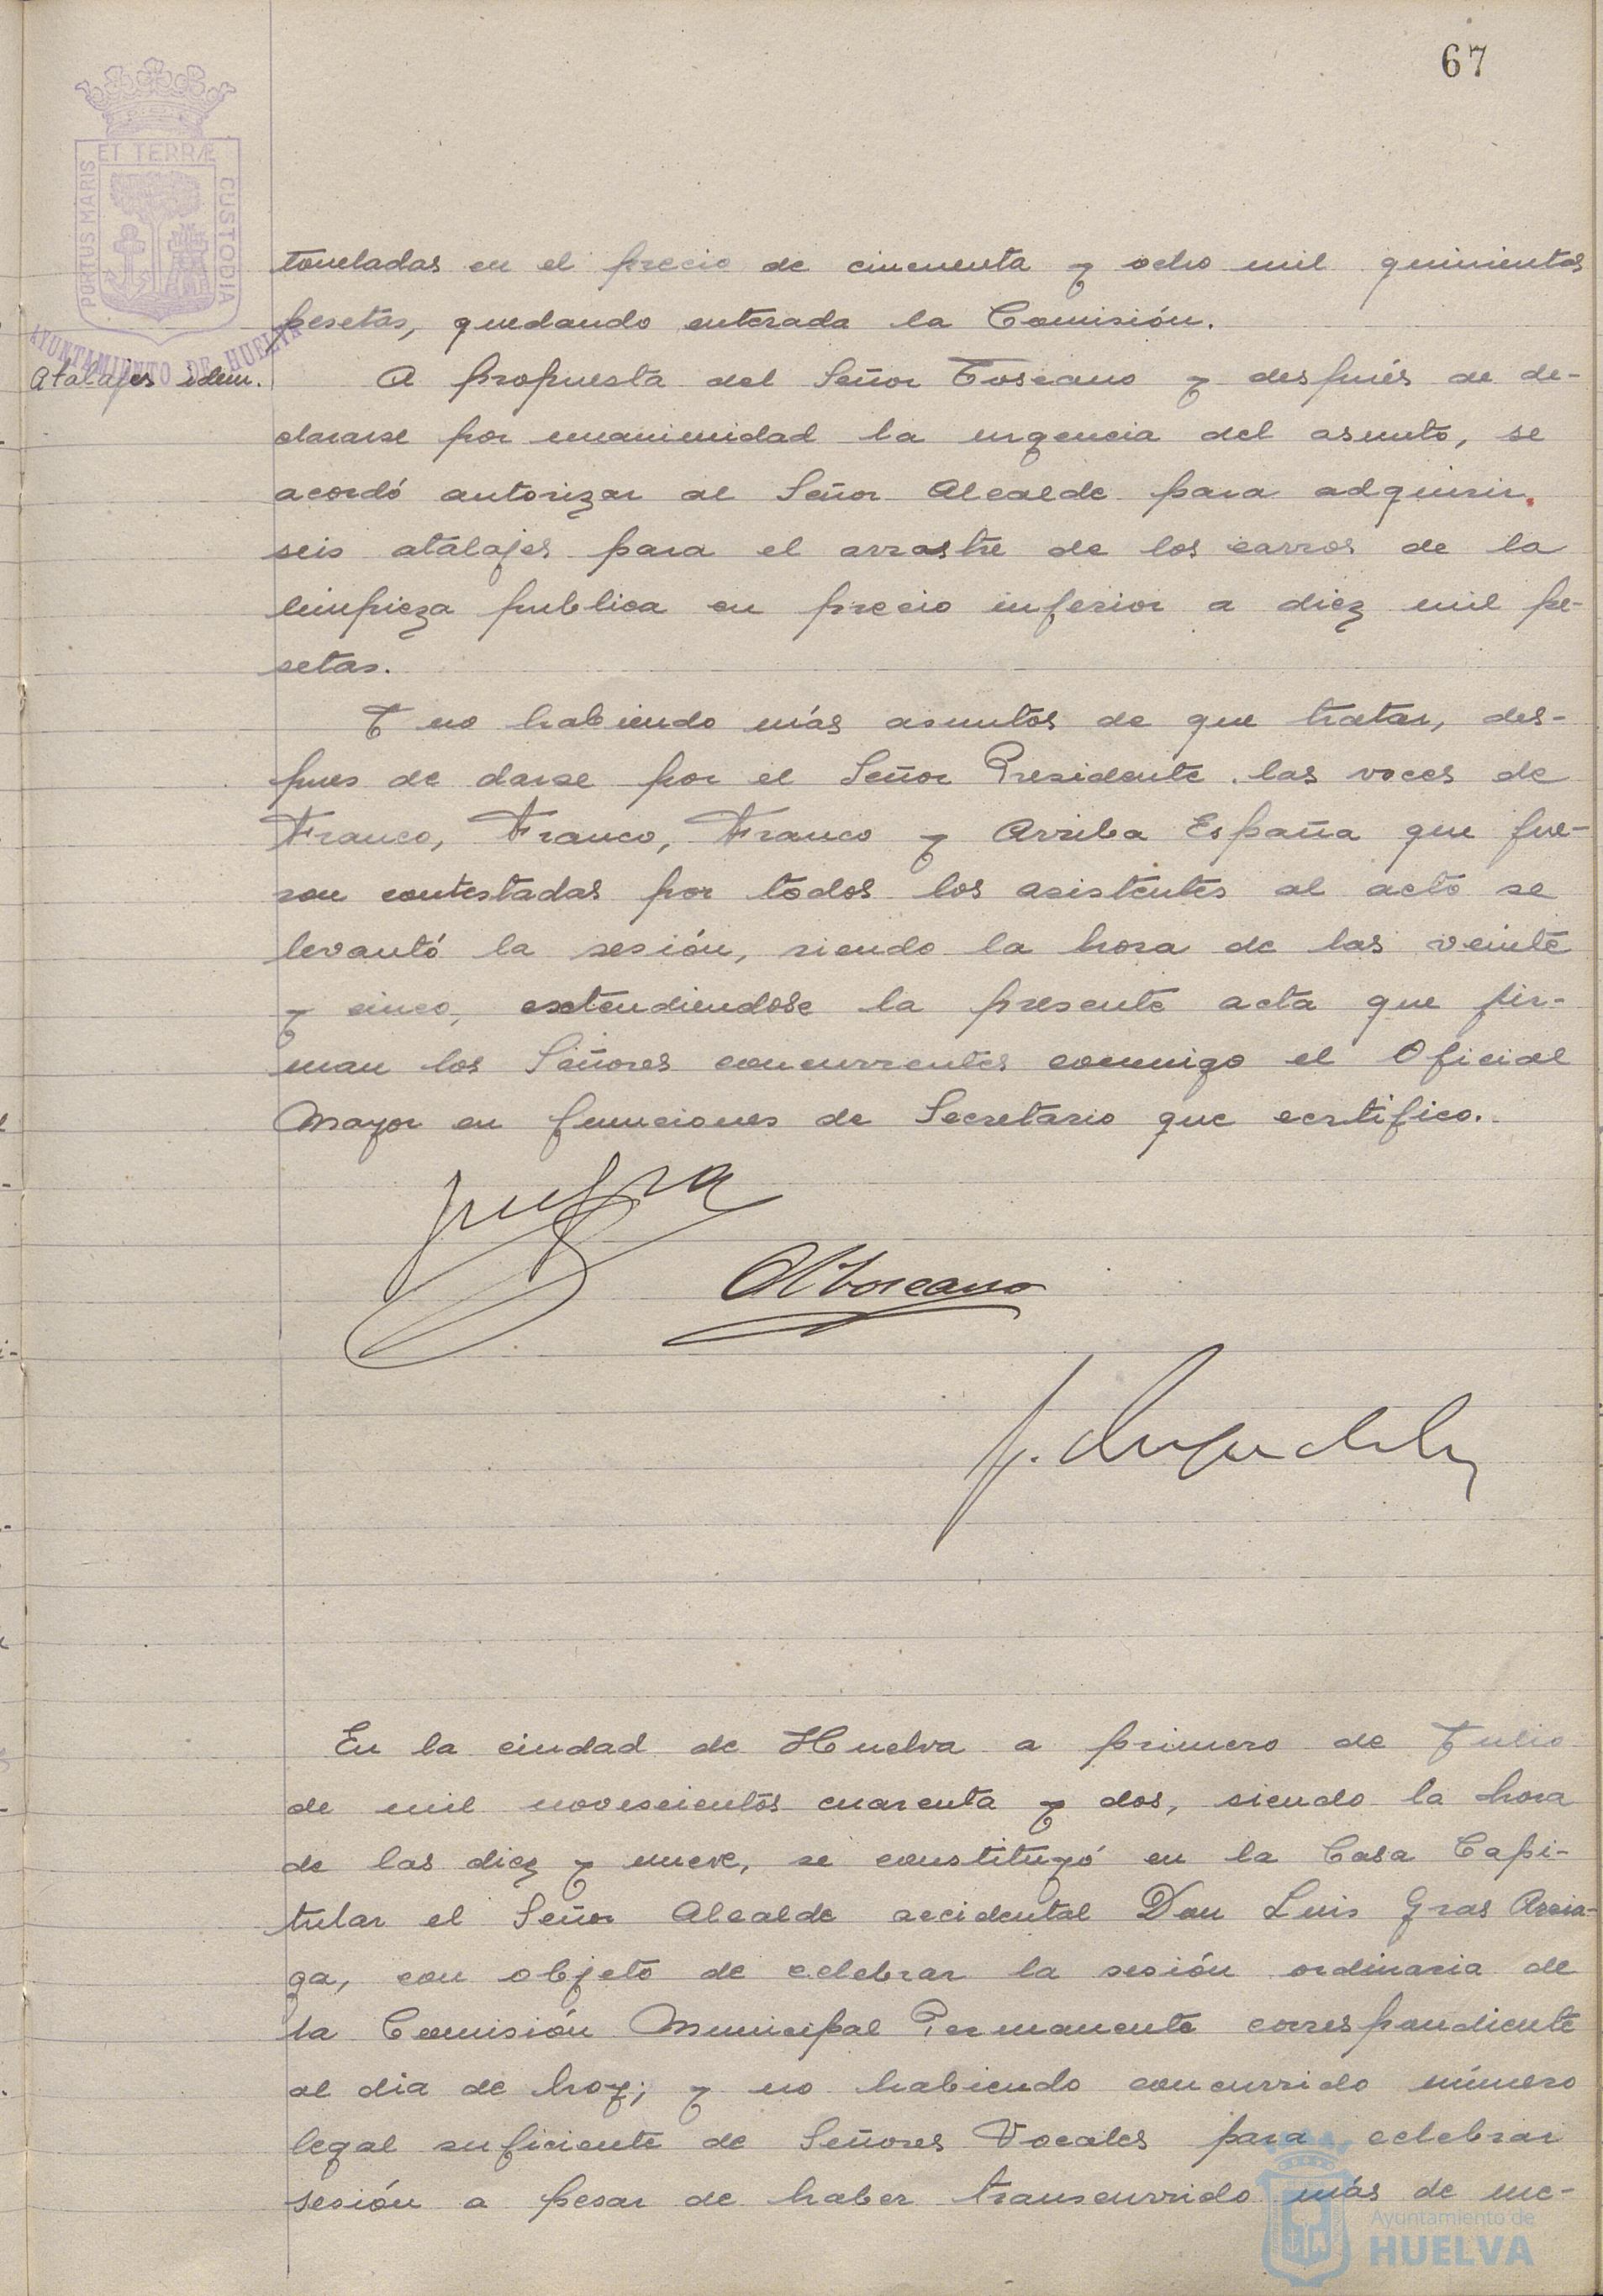 67
ET TERRÆ
PORTUS MARIS
CUSTODIA
AYUNTAMIENTO DE HUELVA
toneladas en el precio de cincuenta y ocho mil quinientas
pesetas, quedando enterada la Comisión.
Atalajes idem.
A propuesta del Señor Toscano y después de de-
clararse por unanimidad la urgencia del asunto, se
acordó autorizar al Señor Alcalde para adquirir
seis atalajes para el arrastre de los carros de la
limpieza publica en precio inferior a diez mil pe-
setas.
Y no habiendo más asuntos de que tratar, des-
pues de darse por el Señor Presidente las voces de
Franco, Franco, Franco y Arriba España que fue-
ron contestadas por todos los asistentes al acto se
levantó la sesión, siendo la hora de las veinte
y cinco, extendiendose la presente acta que fir-
man los Señores concurrentes conmigo el Oficial
Mayor en funciones de Secretario que certifico.
En la ciudad de Huelva a primero de Julio
de mil novescientos cuarenta y dos, siendo la hora
de las diez y nueve, se constituyó en la Casa Capi-
tular el Señor Alcalde accidental Don Luis Gras Arcia-
ga, con objeto de celebrar la sesión ordinaria de
la Comisión Municipal Permanente correspondiente
al dia de hoy; y no habiendo concurrido número
legal suficiente de Señores Vocales para celebrar
sesión a pesar de haber transcurrido más de me-
Ayuntamiento de
HUELVA